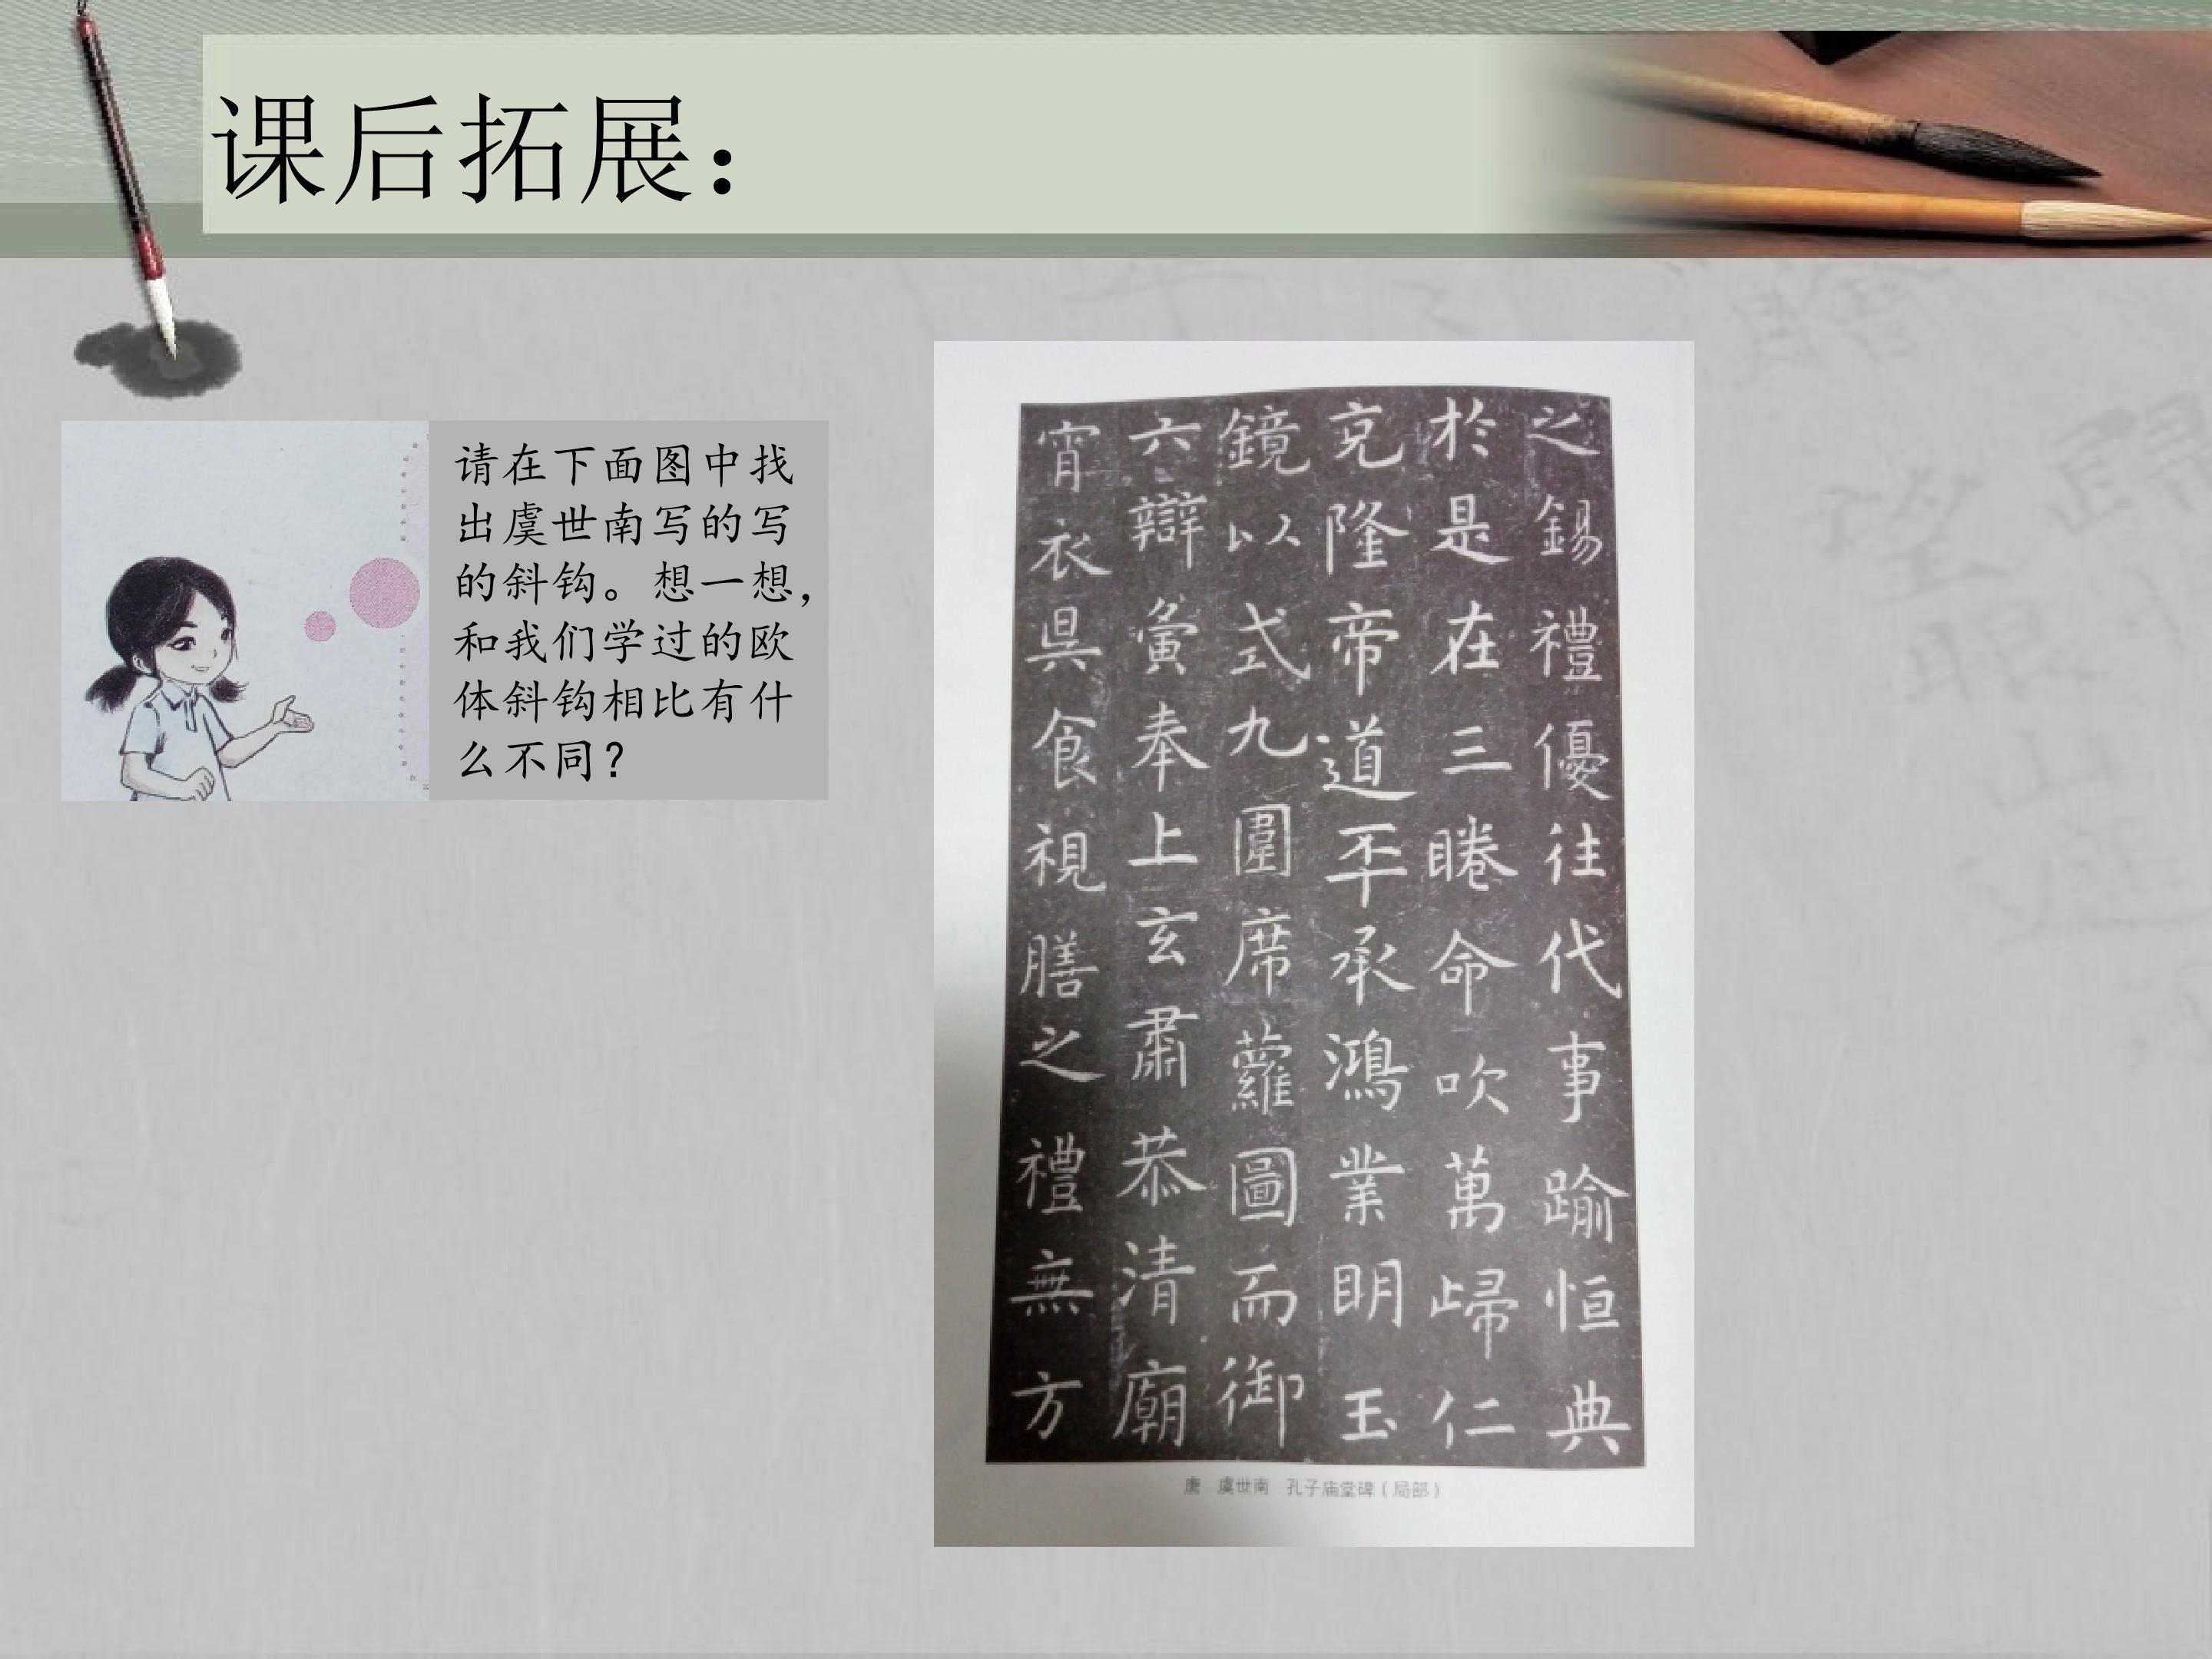 课后拓展：
请在下面图中找
出虞世南写的写
的斜钩。想一想，
和我们学过的欧
体斜钩相比有什
么不同？
之錫禮優往代事踰恒典
於是在三睠命吹萬歸仁
克隆帝道丕承鴻業明玉
鏡以式九圍席蘿圖而御
六辯寅奉上玄肅恭清廟
宵衣昃食視膳之禮無方
唐 虞世南 孔子庙堂碑（局部）